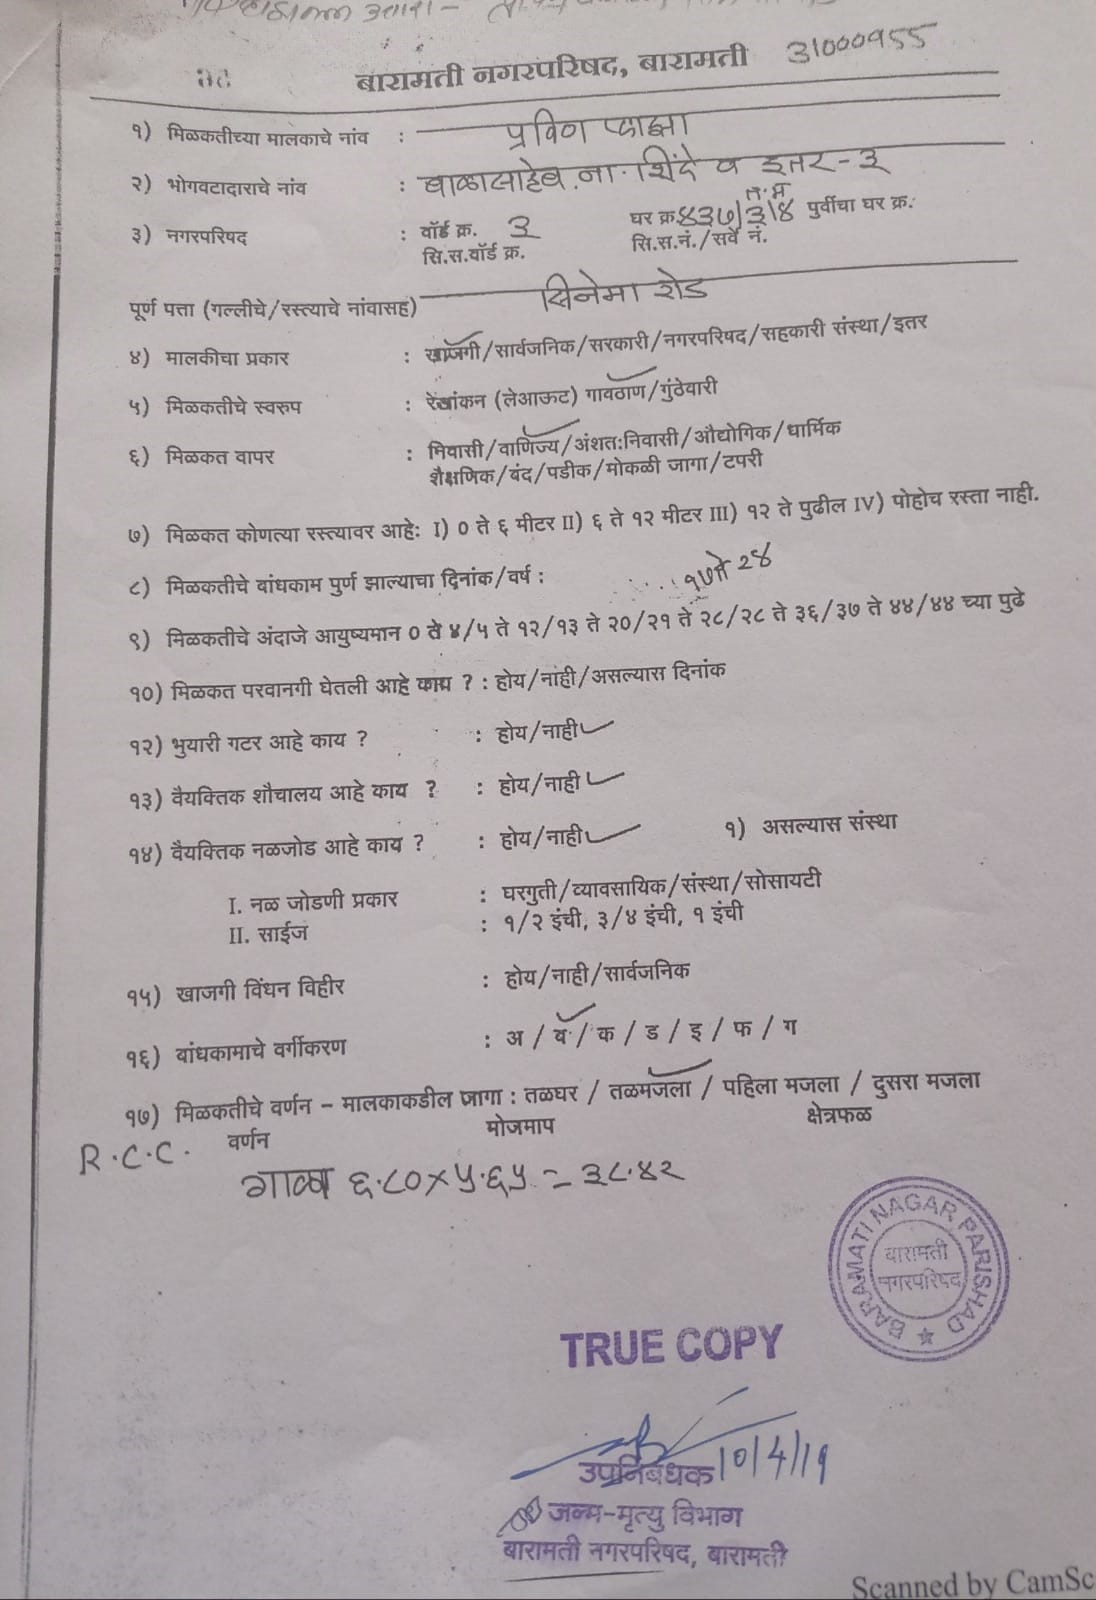 बारामती नगरपरिषद, बारामती 31000955
१) मिळकतीच्या मालकाचे नांव : प्रविण प्लाझा
२) भोगवटादाराचे नांव : बाळासाहेब.ना.शिंदे व इतर-३
त.म
३) नगरपरिषद : वॉर्ड क्र. ३ घर क्र.४३७/३/४ पुर्वीचा घर क्र.
सि.स.वॉर्ड क्र. सि.स.नं./सर्वे नं.
पूर्ण पत्ता (गल्लीचे/रस्त्याचे नांवासह) सिनेमा रोड
४) मालकीचा प्रकार : खाजगी/सार्वजनिक/सरकारी/नगरपरिषद/सहकारी संस्था/इतर
५) मिळकतीचे स्वरुप : रेखांकन (लेआऊट) गावठाण/गुंठेवारी
६) मिळकत वापर : निवासी/वाणिज्य/अंशत:निवासी/औद्योगिक/धार्मिक
शैक्षणिक/बंद/पडीक/मोकळी जागा/टपरी
७) मिळकत कोणत्या रस्त्यावर आहेः I) 0 ते ६ मीटर II) ६ ते १२ मीटर III) १२ ते पुढील IV) पोहोच रस्ता नाही.
८) मिळकतीचे बांधकाम पुर्ण झाल्याचा दिनांक/वर्ष : १७ते २४
९) मिळकतीचे अंदाजे आयुष्यमान 0 ते ४/५ ते १२/१३ ते २०/२१ ते २८/२८ ते ३६/३७ ते ४४/४४ च्या पुढे
१०) मिळकत परवानगी घेतली आहे काय ? : होय/नाही/असल्यास दिनांक
१२) भुयारी गटर आहे काय ? : होय/नाही
१३) वैयक्तिक शौचालय आहे काय ? : होय/नाही
१४) वैयक्तिक नळजोड आहे काय ? : होय/नाही १) असल्यास संस्था
I. नळ जोडणी प्रकार : घरगुती/व्यावसायिक/संस्था/सोसायटी
II. साईज : १/२ इंची, ३/४ इंची, १ इंची
१५) खाजगी विंधन विहीर : होय/नाही/सार्वजनिक
१६) बांधकामाचे वर्गीकरण : अ / ब / क / ड / इ / फ / ग
१७) मिळकतीचे वर्णन – मालकाकडील जागा : तळघर / तळमजला / पहिला मजला / दुसरा मजला
R.C.C. वर्णन मोजमाप क्षेत्रफळ
गाळा ६.८०x५.६५ = ३८.४२
BARAMATI NAGAR PARISHAD
बारामती
नगरपरिषद
TRUE COPY
उपनिबंधक 10/4/19
जन्म-मृत्यु विभाग
बारामती नगरपरिषद, बारामती
Scanned by CamSc